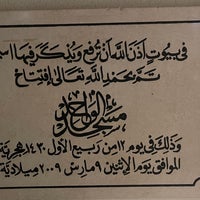 في بيوت أذن الله أن ترفع ويذكر فيها اسم
تم بحمد الله تعالى إفتتاح
مسجد
وذلك في يوم ١٢ من ربيع الأول ١٤٣٠ هجرية
الموافق يوم الإثنين ٩ مارس ٢٠٠٩ ميلادية